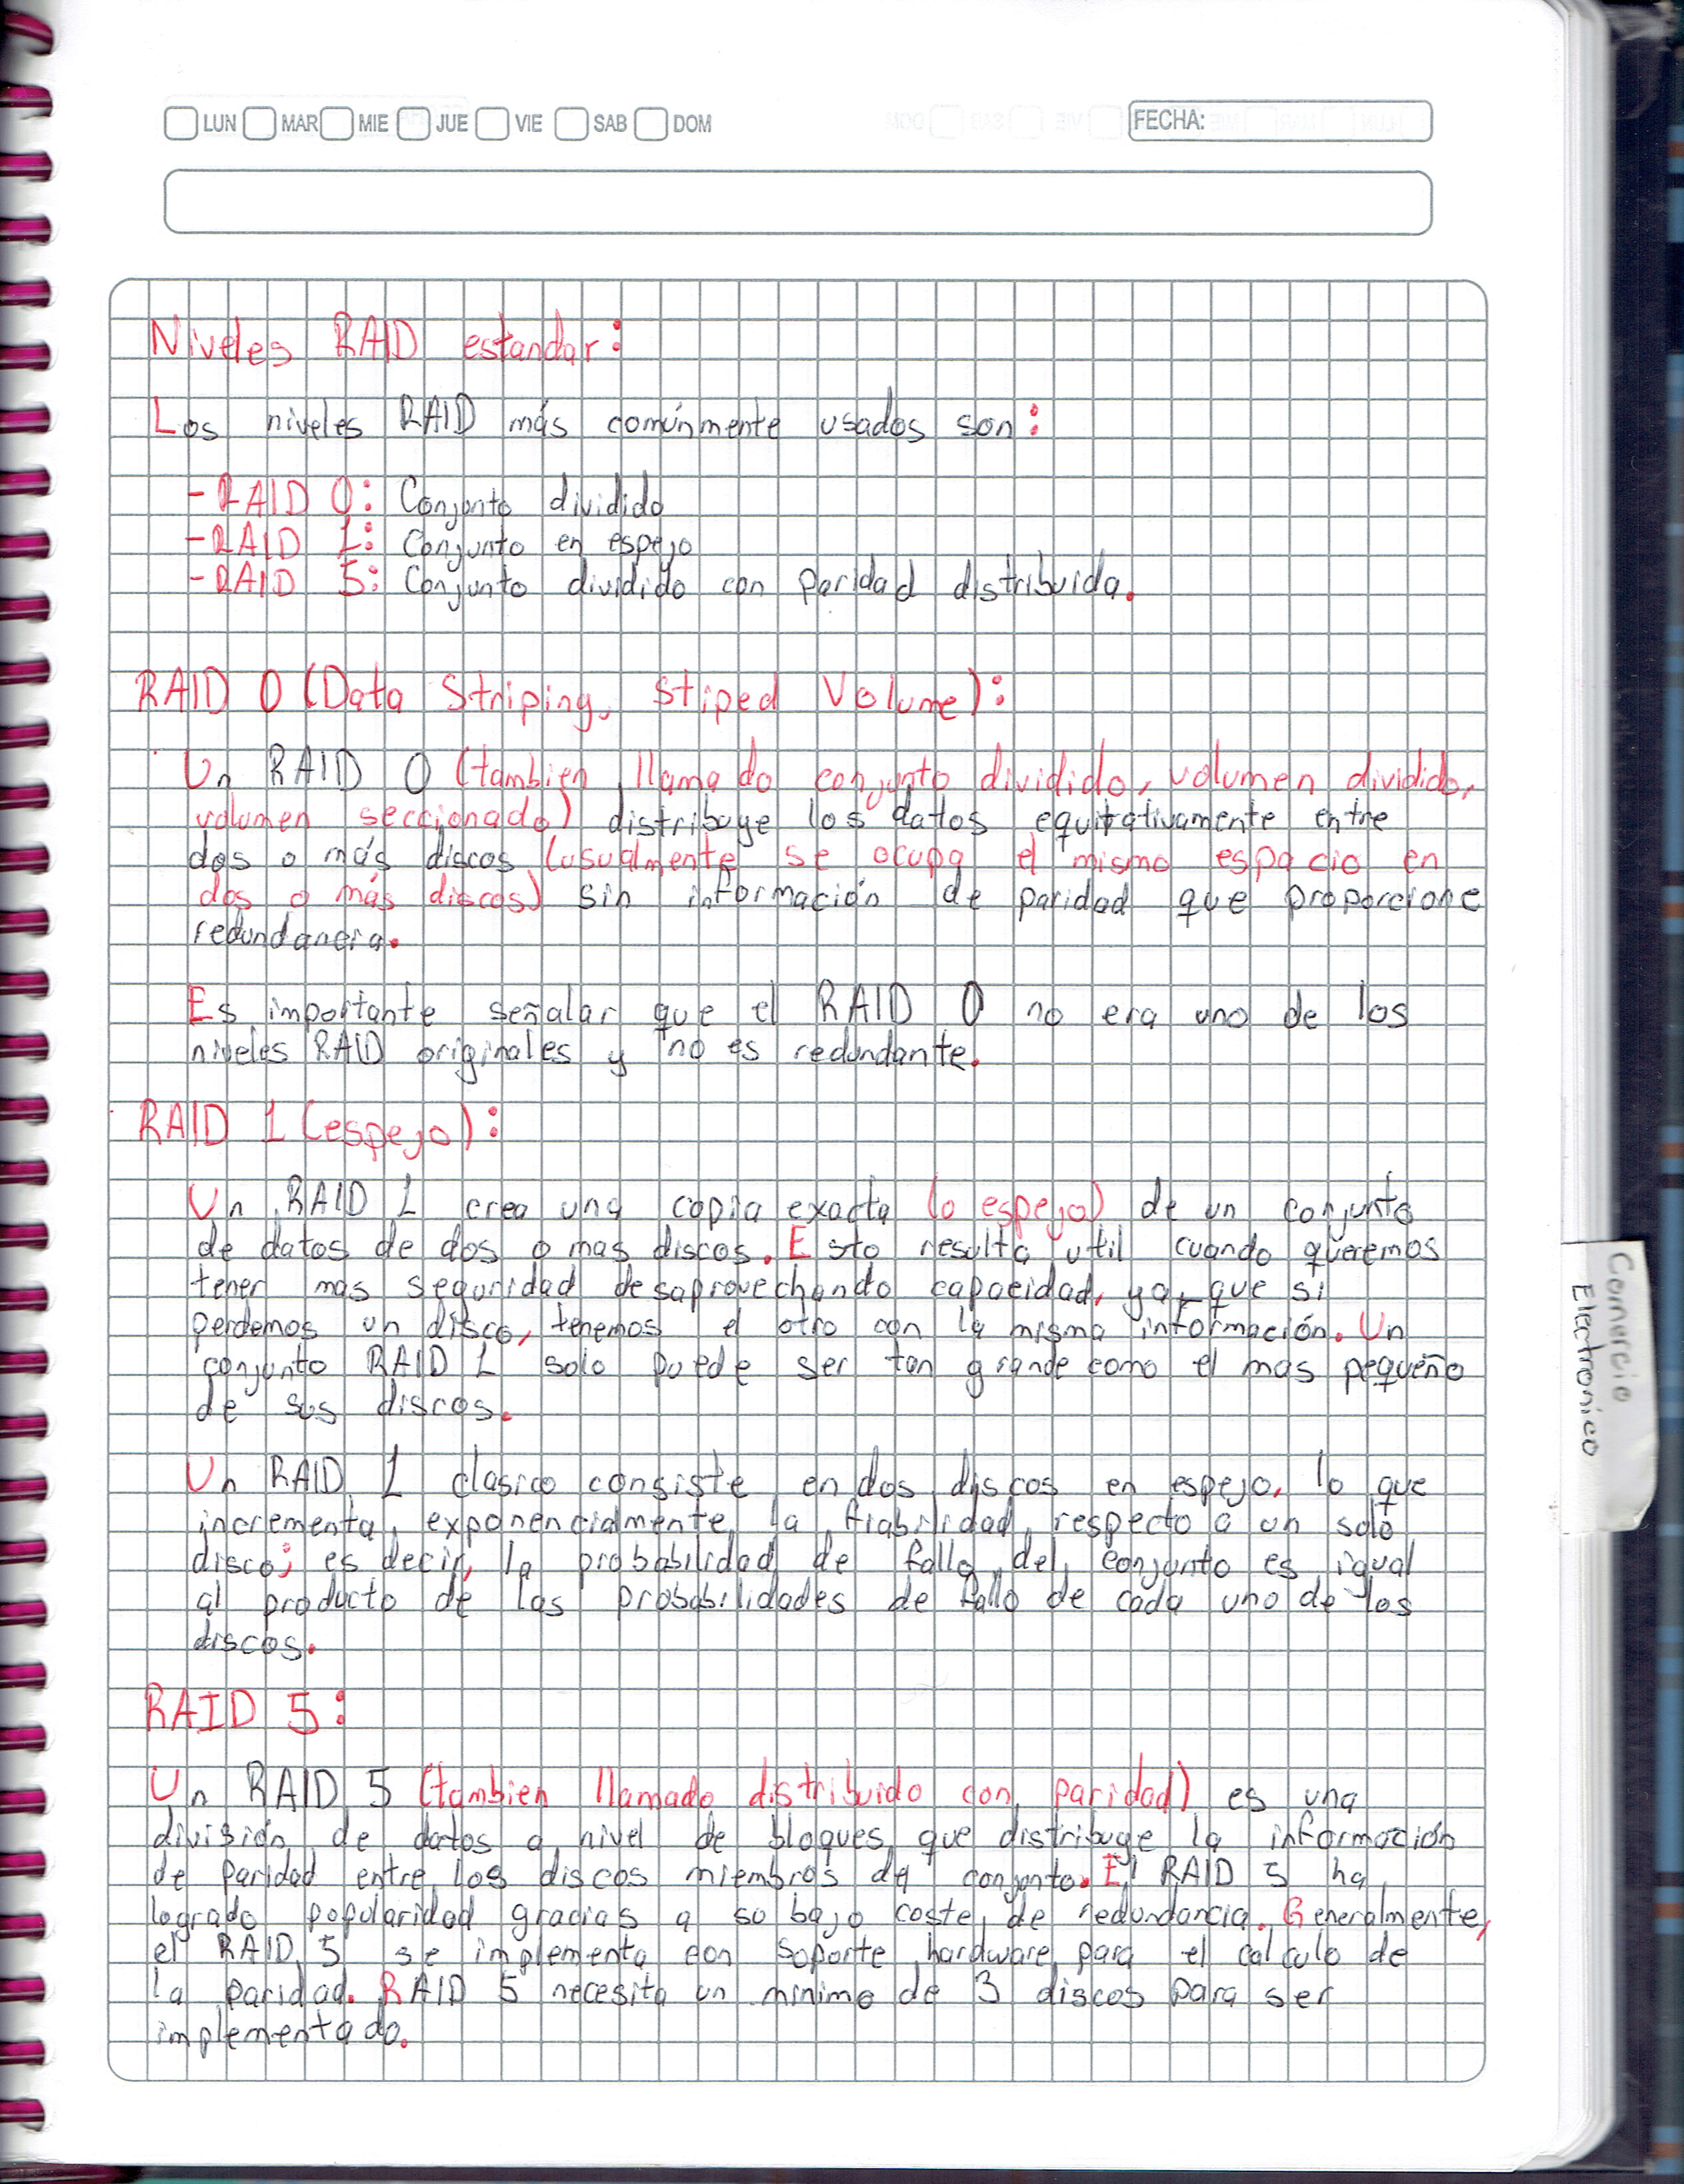 LUN MAR MIE JUE VIE SAB DOM FECHA:
Niveles RAID estandar:
Los niveles RAID más comúnmente usados son:
-RAID 0: Conjunto dividido
-RAID 1: Conjunto en espejo
-RAID 5: Conjunto dividido con paridad distribuida.
RAID 0 (Data Striping, Stiped Volume):
Un RAID 0 (tambien llamado conjunto dividido, volumen dividido,
volumen seccionado) distribuye los datos equitativamente entre
dos o más discos (usualmente se ocupa el mismo espacio en
dos o más discos) sin información de paridad que proporcione
redundancia.
Es importante señalar que el RAID 0 no era uno de los
niveles RAID originales y no es redundante.
RAID 1 (espejo):
Un RAID 1 crea una copia exacta (o espejo) de un conjunto
de datos de dos o mas discos. Esto resulta util cuando queremos
tener mas seguridad desaprovechando capacidad, ya que si
perdemos un disco, tenemos el otro con la misma información. Un
conjunto RAID 1 solo puede ser tan grande como el mas pequeño
de sus discos.
Un RAID 1 clasico consiste en dos discos en espejo, lo que
incrementa exponencialmente la fiabilidad respecto a un solo
disco; es decir, la probabilidad de fallo del conjunto es igual
al producto de las probabilidades de fallo de cada uno de los
discos.
RAID 5:
Un RAID 5 (tambien llamado distribuido con paridad) es una
división de datos a nivel de bloques que distribuye la información
de paridad entre los discos miembros del conjunto. El RAID 5 ha
logrado popularidad gracias a su bajo coste de redundancia. Generalmente,
el RAID 5 se implementa con soporte hardware para el calculo de
la paridad. RAID 5 necesita un minimo de 3 discos para ser
implementado.
Comercio
Electronico